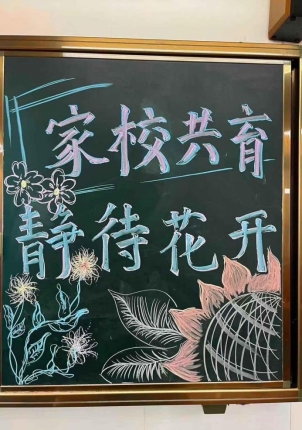 家校共育
静待花开